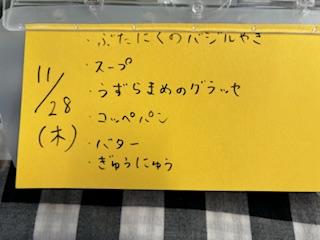 ・ぶたにくのバジルやき
・スープ
・うずらまめのグラッセ
・コッペパン
・バター
・ぎゅうにゅう
11/28
(木)